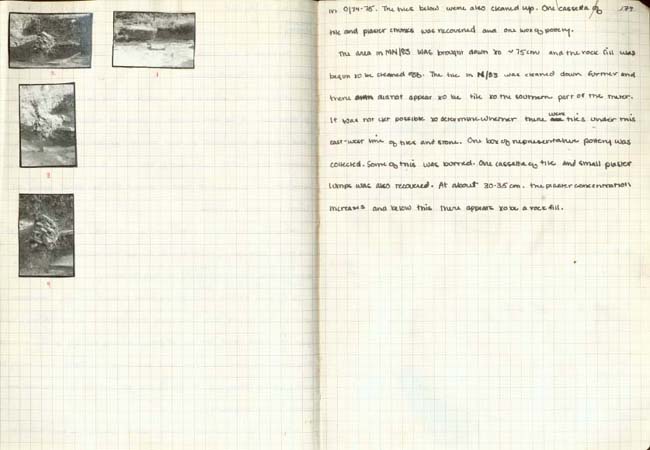 179
in O/74-75. The tiles below were also cleaned up. One cassetta of
tile and plaster chunks was recovered and one box of pottery.
The area in MN/83 was brought down to ~75cm and the rock fill was
begun to be cleaned. The tile in N/83 was cleaned down further and
there did not appear to be tile to the southern part of the meter.
It was not yet possible to determine whether there were tiles under this
east-west line of tiles and stone. One box of representative pottery was
collected. Some of this was burned. One cassetta of tile and small plaster
lumps was also recovered. At about 30-35cm. the plaster concentration
increases and below this there appears to be a rock fill.